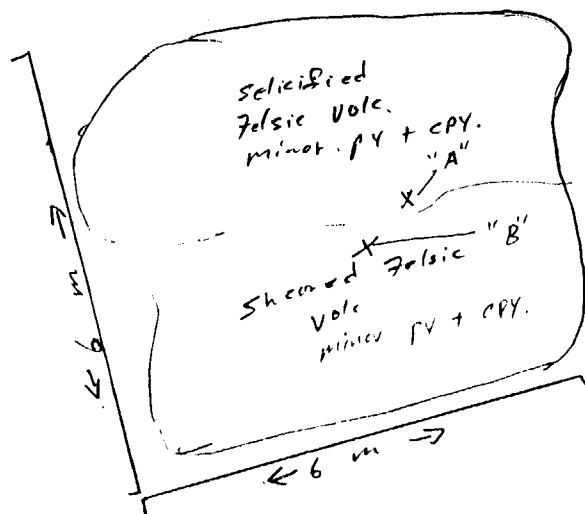 Selicified
Felsic Volc.
minor. py + cpy.
"A"
X
X
"B"
Sheared Felsic
Volc
minor py + cpy.
6 m
6 m